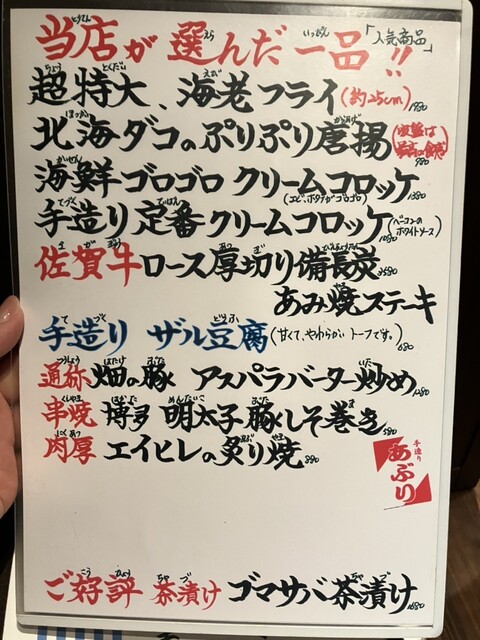 当店が選んだ一品!!「人気商品」
超特大、海老フライ(約25cm)1980
北海ダコのぷりぷり唐揚
海鮮ゴロゴロクリームコロッケ
(エビ、ホタテがゴロゴロ)
手造り定番クリームコロッケ(ベーコンのホワイトソース)
佐賀牛ロース厚切り備長炭
あみ焼ステーキ
手造り ザル豆腐(甘くて、やわらかい トーフです。)680
通称畑の豚 アスパラバター炒め
串焼 博多 明太子豚しそ巻き
肉厚 エイヒレの炙り焼
手造り
あぶり
ご好評 茶漬け ゴマサバ茶漬け